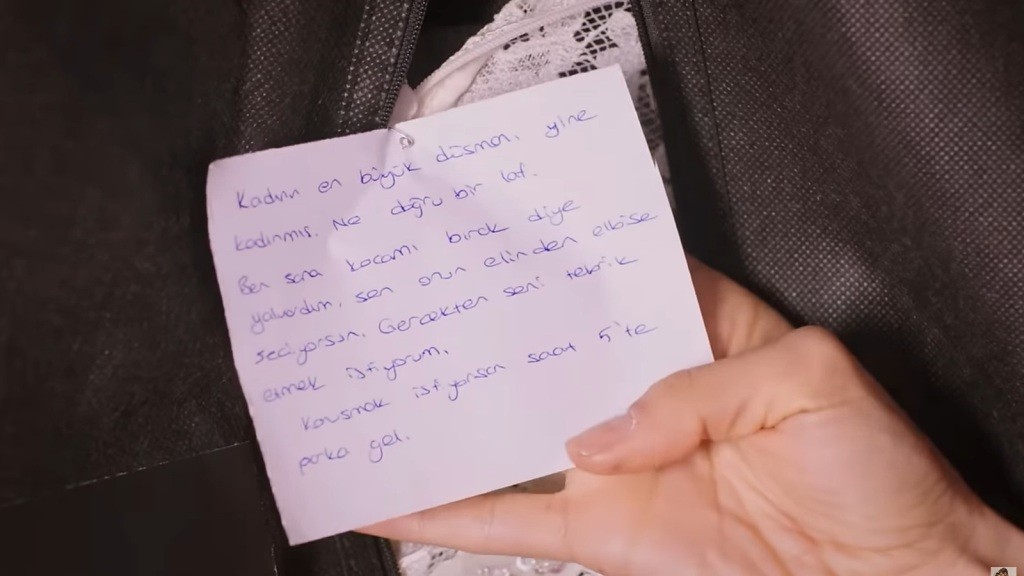 Kadının en büyük düşmanı yine
kadınmış. Ne doğru bir laf.
Ben sana kocamı bırak diye
yalvardım, sen onun elinden elbise
seçiyorsun. Gerçekten seni tebrik
etmek istiyorum.
Konuşmak istiyorsan saat 5'te
parka gel.